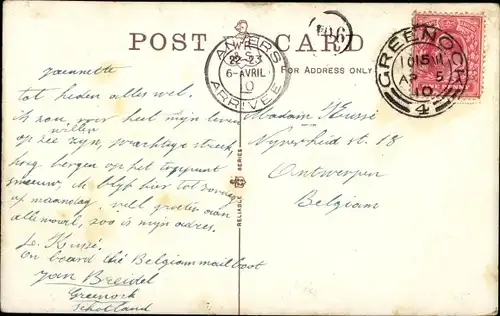 POST CARD
FOR ADDRESS ONLY
ANVERS
22-23
6-AVRIL
10
ARRIVÉE
GREENOCK
1015
AP 5
10
4
Jeannette
tot heden alles wel.
Ik zou voor heel mijn leven
willen
op zee zijn, prachtige streek,
hoog bergen op het toppunt
sneeuw, ik blijf hier tot zondag
of maandag. veel groeten aan
allemaal, zoo is mijn adres.
on board the Belgian mailboat
Jan Breidel
Greenock
Schotland
RELIABLE
SERIES
Madam
Nyverheid st. 18
Antwerpen
Belgium